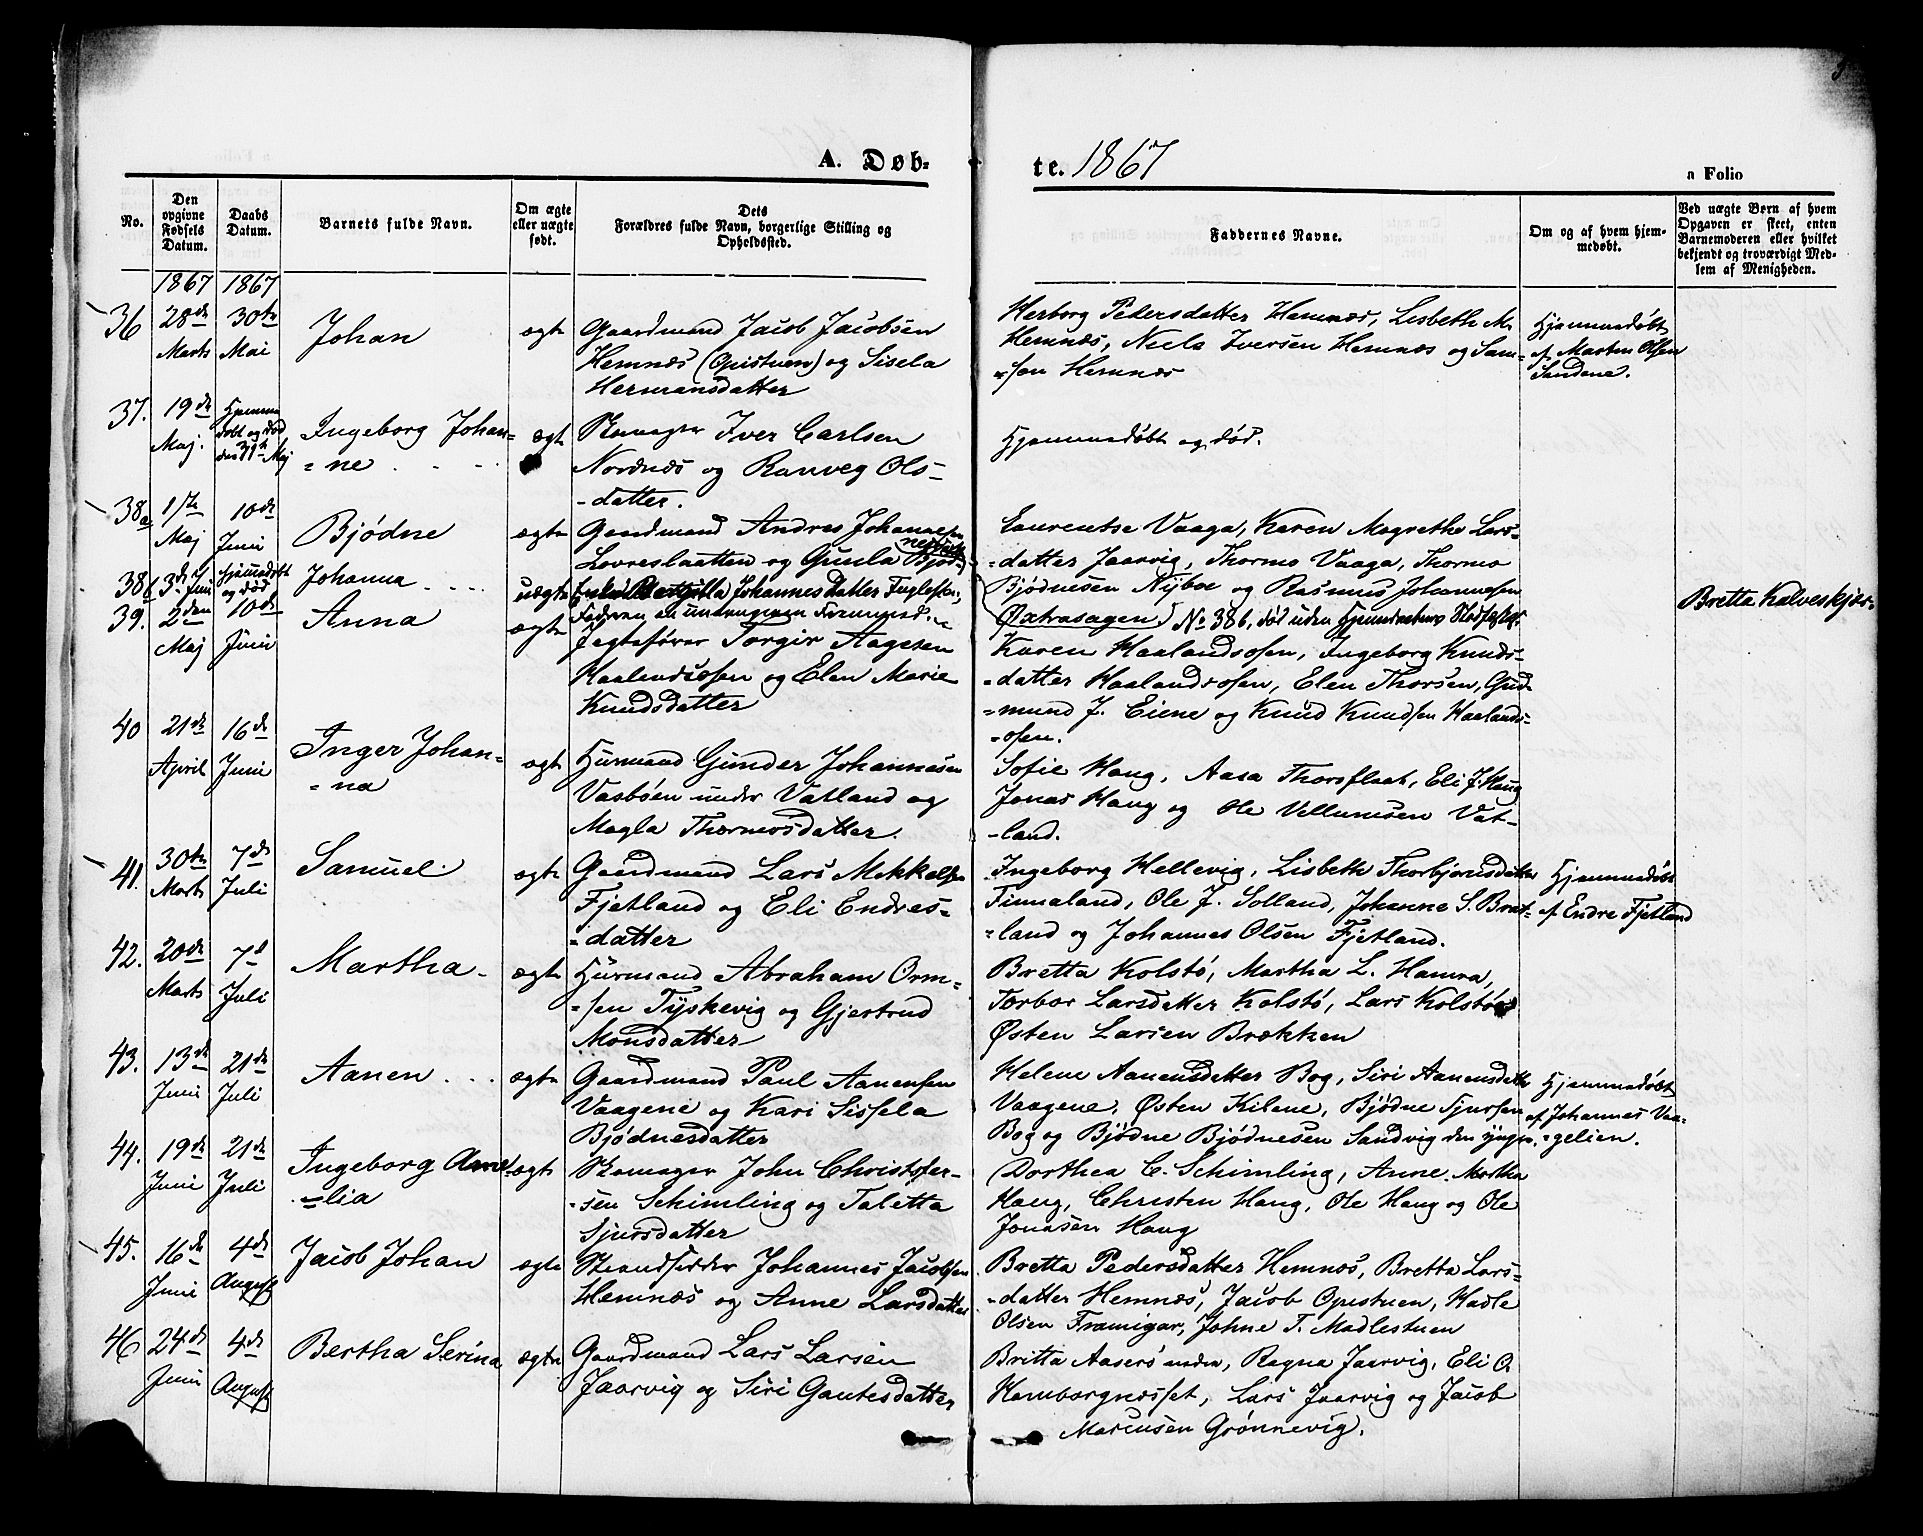 A. Døb-
te. 1867
a Folio
No.
Den opgivne Fødsels Datum.
Daabs Datum.
Barnets fulde Navn.
Om ægte eller uægte født.
Dets Forældres fulde Navn, borgerlige Stilling og Opholdssted.
Faddernes Navne.
Om og af hvem hjemmedøbt.
Ved uægte Børn af hvem Opgaven er skeet, enten Barnemoderen eller hvilket bekjendt og troværdigt Medlem af Menigheden.
1867 1867
36
28de Marts
30te Mai
Johan
ægte
Gaardmand Jacob Jacobsen
Hemnæs (Opistuen) og Sisela
Hermansdatter
Herborg Pedersdatter Hemnæs, Lisbeth M.
Hemnæs, Niels Iversen Hemnæs og Sam-
-sen Hemnæs
Hjemmedøbt
af Marten Olsen
Sandene.
37.
19de Maj.
Hjemme
døbt og død
den 31te Maj
Ingeborg Johan-
-ne
ægte
Skomager Iver Carlsen
Nordnæs og Ranveg Ols-
-datter.
Hjemmedøbt og død.
38a
1ste Maj
10de Juni
Bjødne
ægte
Gaardmand Andreas Johannesen
Lovreslaatten og Gunla Bjød-
nesdatter
Laurentse Vaaga, Karen Magrethe Lars-
-datter Jaarvig, Thormo Vaaga, Thormo
Bjødnesen Nijboe og Rasmus Johannesen
Øxtrasagen.
38b
3de Juni
hjemmedøbt
og død
Johanna
uægte
Enke Bertgilla Johannesdatter Fuglesten,
Faderen en undragenen Fremmed.
No 38b, død uden Hjemmedaabens Stadfæstelse.
Bretta Kalveskjær
39.
2den Maj
10de Juni
Anna
ægte
Jægtefører Torgir Aagesen
Haalandsosen og Elen Marie
Knudsdatter
Karen Haalandsosen, Ingeborg Knuds-
-datter Haalandsosen, Elen Thorsen, Gud-
-mund J. Eiene og Knud Knudsen Haalands-
-osen.
40
21de April
16de Juni
Inger Johan-
-na
ægte
Huusmand Gunder Johannesen
Vasbøen under Vatland og
Magla Thormosdatter.
Sofie Haug, Aasa Thorsflaat, Eli J. Haug
Jonas Haug og Ole Vellumsen Vat-
-land.
41.
30te Marts
7de Juli
Samuel
ægte
Gaardmand Lars Mikkelsen
Fjetland og Eli Endres-
-datter
Ingeborg Hellevig, Lisbeth Thorbjørnsdatter
Finnaland, Ole J. Solland, Johanne S. Brat-
-land og Johannes Olsen Fjetland.
Hjemmedøbt
af Endre Fjetland
42.
20de Marts
7de Juli
Martha
ægte
Huusmand Abraham Orm-
-sen Tyskevig og Gjertrud
Monsdatter
Bretta Kolstø, Martha L. Hamra,
Torbor Larsdatter Kolstø, Lars Kolstø og
Østen Larsen Brækken
43.
13de Juni
21de Juli
Aanen
ægte
Gaardmand Paul Aanensen
Vaagene og Kari Sissela
Bjødnesdatter
Helene Aanensdatter Bog, Siri Aanensdatter
Vaagene, Østen Kilene, Bjødne Sjursen
Bog og Bjødne Bjødnesen Sandvig den yngre.
Hjemmedøbt
af Johannes Vaa-
-gelien.
44.
19de Juni
21de Juli
Ingeborg Ame-
-lia
ægte
Skomager John Christofer-
-sen Schimling og Taletta
Sjursdatter
Dorthea C. Schimling, Anne Martha
Haug, Christen Haug, Ole Haug og Ole
Jonasen Haug
45.
16de Juni
4de August
Jacob Johan
ægte
Strandsidder Johannes Jacobsen
Hemnæs og Anne Larsdatter
Bretta Pedersdatter Hemnæs, Bretta Lars-
-datter Hemnæs, Jacob Opestuen, Hadle
Olsen Framigar, Johne T. Madlestuen
46
24de Juni
4de August
Bertha Serina
ægte
Gaardmand Lars Larsen
Jaarvig og Siri Gautesdatter
Britta Aaserø, Ragna Jaarvig, Eli O.
Hamborgnæsset, Lars Jaarvig og Jacob
Marcusen Grønnevig.